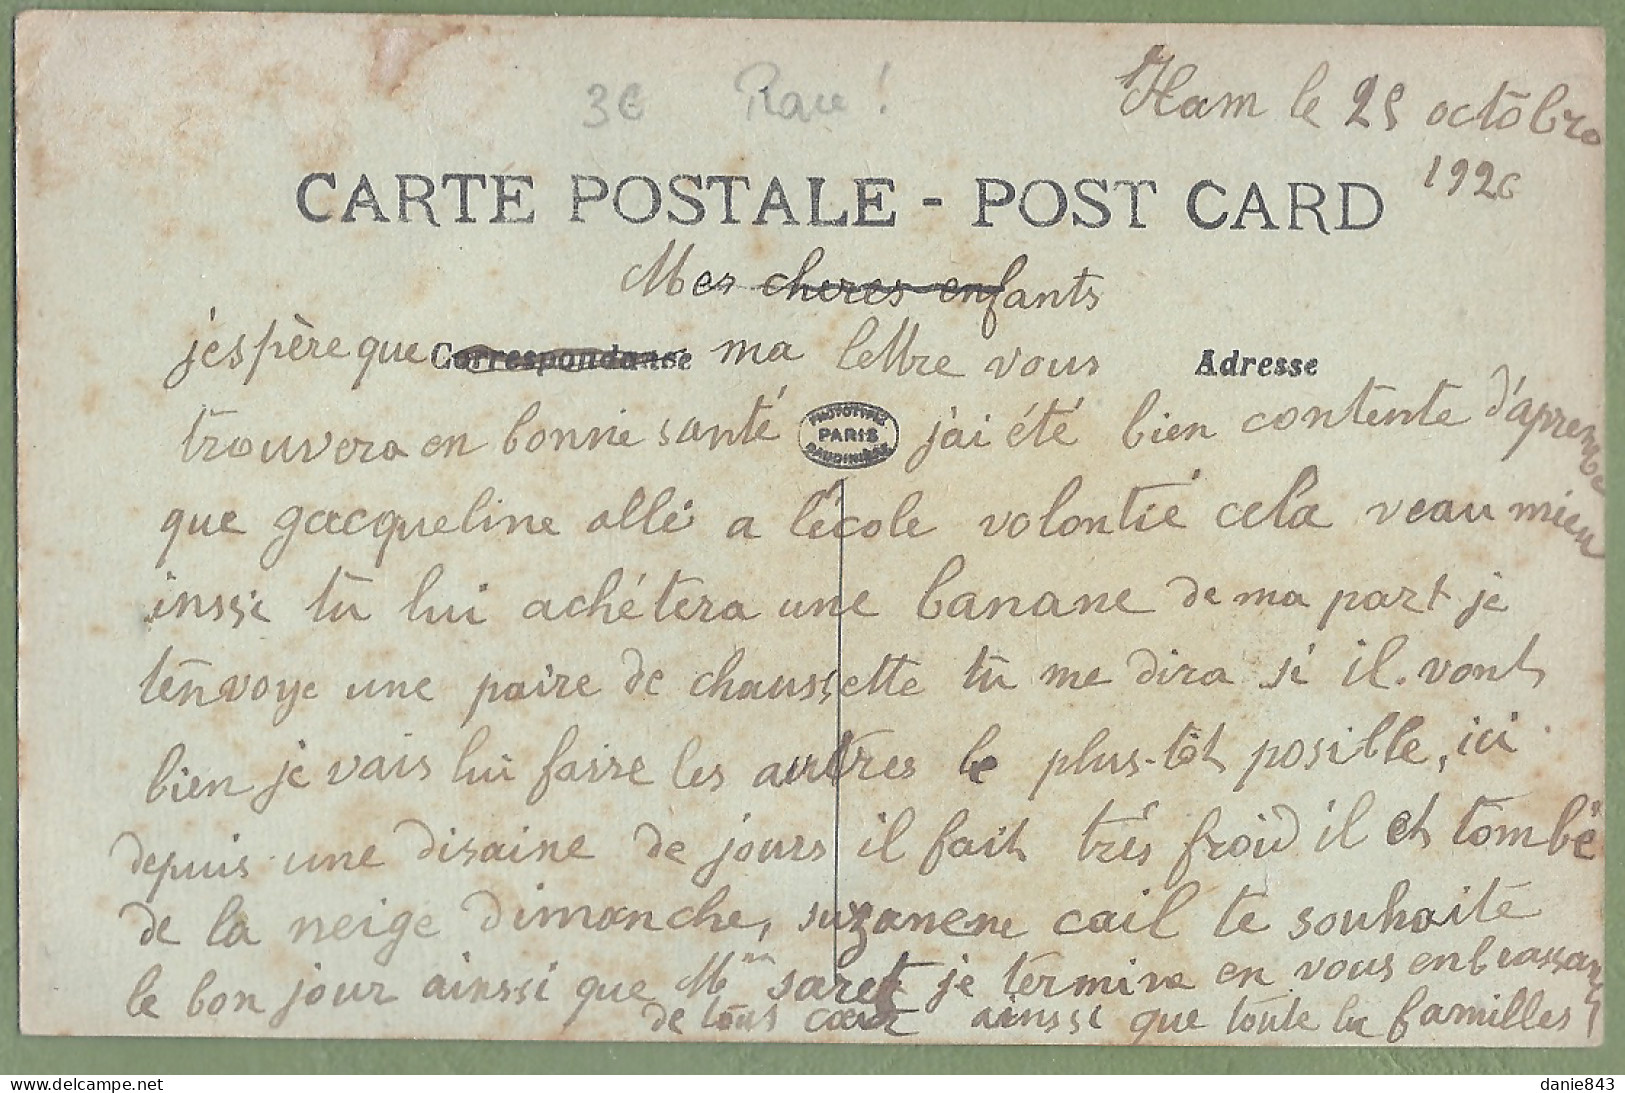 3€ Rare !
Ham le 25 octobre
1926
CARTE POSTALE - POST CARD
Mes cheres enfants
j'espère que Correspondance ma lettre vous Adresse
trouvera en bonne santé PHOTOTYPIE PARIS BAUDINIÈRE j'ai été bien contente d'aprende
que gacqueline allé a l'école volontié cela veau mieu
inssi tu lui achétera une banane de ma part je
t'envoye une paire de chaussette tu me dira si il vont
bien je vais lui faire les autres le plus-tôt posible, ici
depuis une disaine de jours il fait trés froid il et tombé
de la neige dimanche, suzanene cail te souhaite
le bon jour ainssi que Mme saret je termine en vous enbrassant
de tous cœur ainssi que toute la familles
danie843